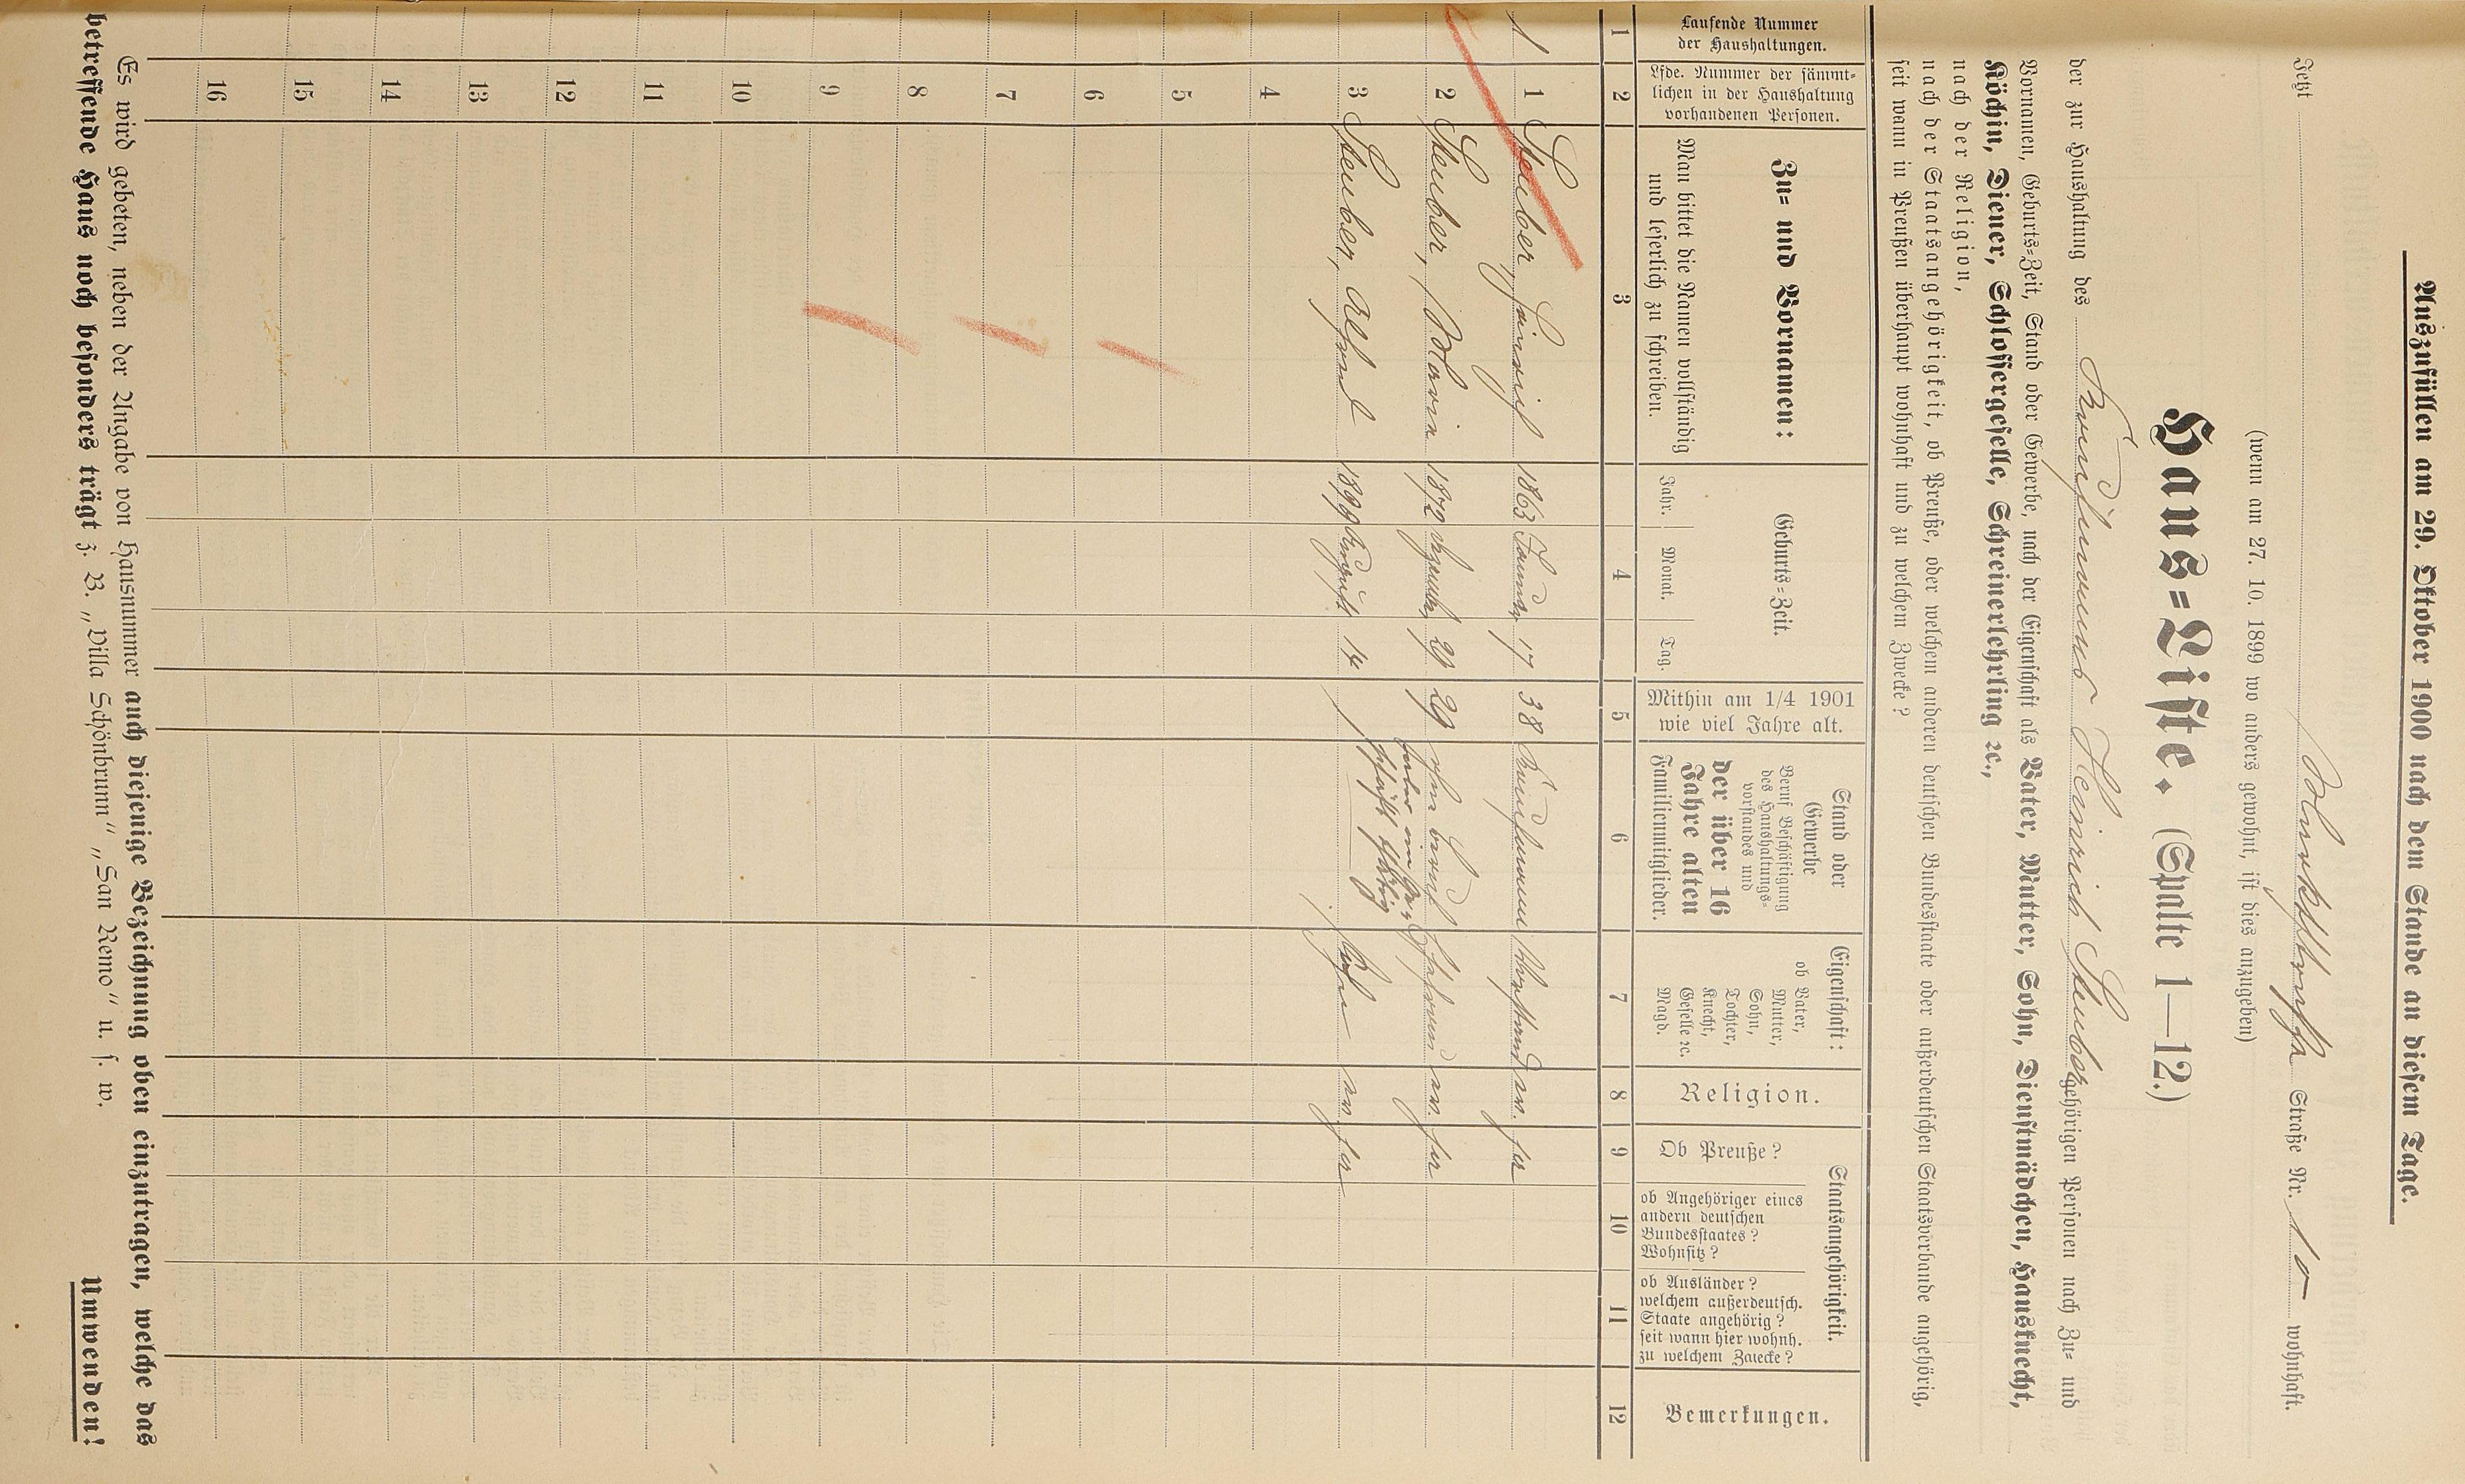 Auszufüllen am 29. Oktober 1900 nach dem Stande an diesem Tage.
Jetzt Straße Nr. 10 wohnhaft.
(wenn am 27. 10. 1899 wo anders gewohnt, ist dies anzugeben)
Haus-Liste. (Spalte 1—12.)
der zur Haushaltung des Kaufmanns Heinrich Steuber gehörigen Personen nach Zu- und
Vornamen, Geburts-Zeit, Stand oder Gewerbe, nach der Eigenschaft als Vater, Mutter, Sohn, Dienstmädchen, Hausknecht,
Köchin, Diener, Schlossergeselle, Schreinerlehrling ꝛc.,
nach der Religion,
nach der Staatsangehörigkeit, ob Preuße, oder welchem anderen deutschen Bundesstaate oder außerdeutschen Staatsverbande angehörig,
seit wann in Preußen überhaupt wohnhaft und zu welchem Zwecke?
Laufende Nummer
der Haushaltungen.
Lfde. Nummer der sämmt-
lichen in der Haushaltung
vorhandenen Personen.
Zu- und Vornamen:
Man bittet die Namen vollständig
und leserlich zu schreiben.
Geburts-Zeit.
Jahr. Monat. Tag.
Mithin am 1/4 1901
wie viel Jahre alt.
Stand oder
Gewerbe
Beruf Beschäftigung
des Haushaltungs-
vorstandes und
der über 16
Jahre alten
Familienmitglieder.
Eigenschaft:
ob
Vater,
Mutter,
Sohn,
Tochter,
Knecht,
Geselle ꝛc.
Magd.
Religion.
Staatsangehörigkeit.
Ob Preuße?
ob Angehöriger eines
andern deutschen
Bundesstaates?
Wohnsitz?
ob Ausländer?
welchem außerdeutsch.
Staate angehörig?
seit wann hier wohnh.
zu welchem Zwecke?
Bemerkungen.
1 2 3 4 5 6 7 8 9 10 11 12
1 1 Steuber, Heinrich 1863 Januar 17 38 Kaufmann Vorstand ev. ja
2 Steuber, Maria 1872 29 ohne Beruf Ehefrau ev. ja
3 Steuber, Alfred 1899 August 14 1 Sohn ev. ja
4
5
6
7
8
9
10
11
12
13
14
15
16
Es wird gebeten, neben der Angabe von Hausnummer auch diejenige Bezeichnung oben einzutragen, welche das
betreffende Haus noch besonders trägt z. B. „Villa Schönbrunn“ „San Remo“ u. s. w.
Umwenden!